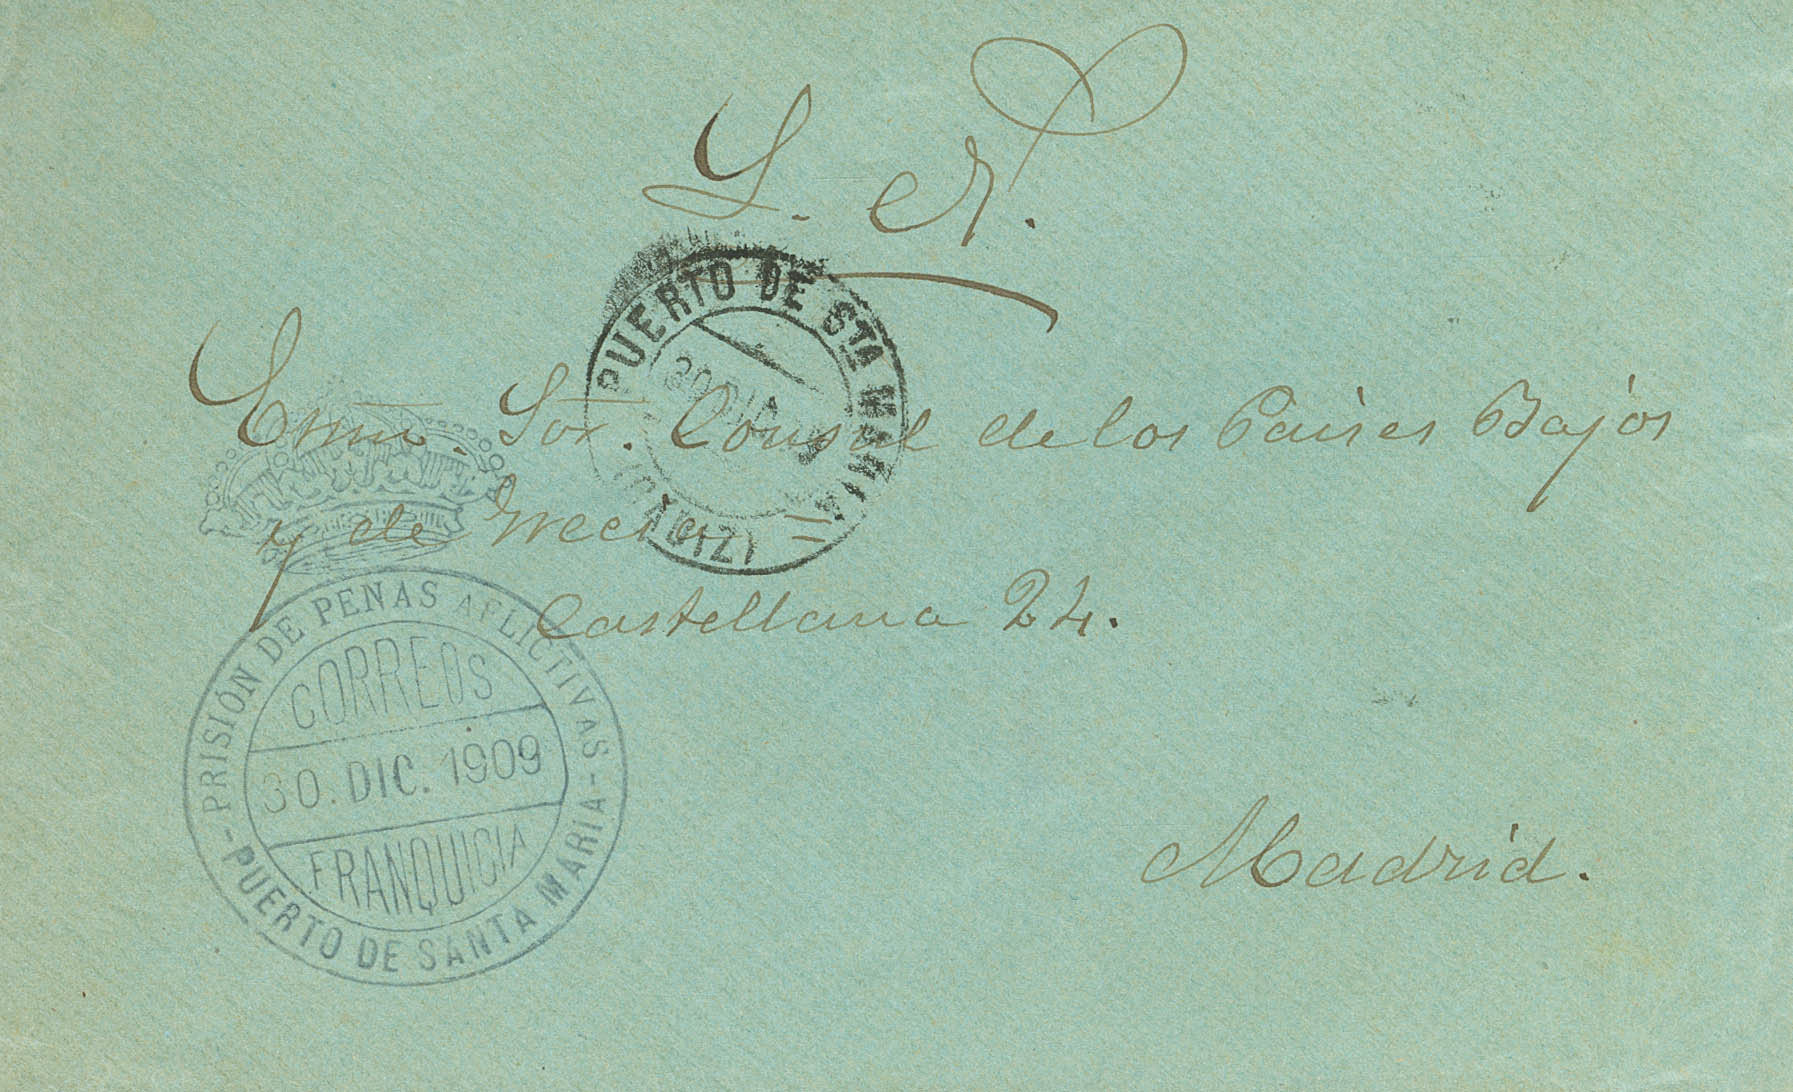 S. N.
Exmo. Sor. Consul de los Paises Bajos
y de Grecia =
Castellana 24.
Madrid.
PUERTO DE STA MARIA
30 DIC
(CADIZ)
- PRISIÓN DE PENAS AFLICTIVAS -
CORREOS
30. DIC. 1909
FRANQUICIA
PUERTO DE SANTA MARIA